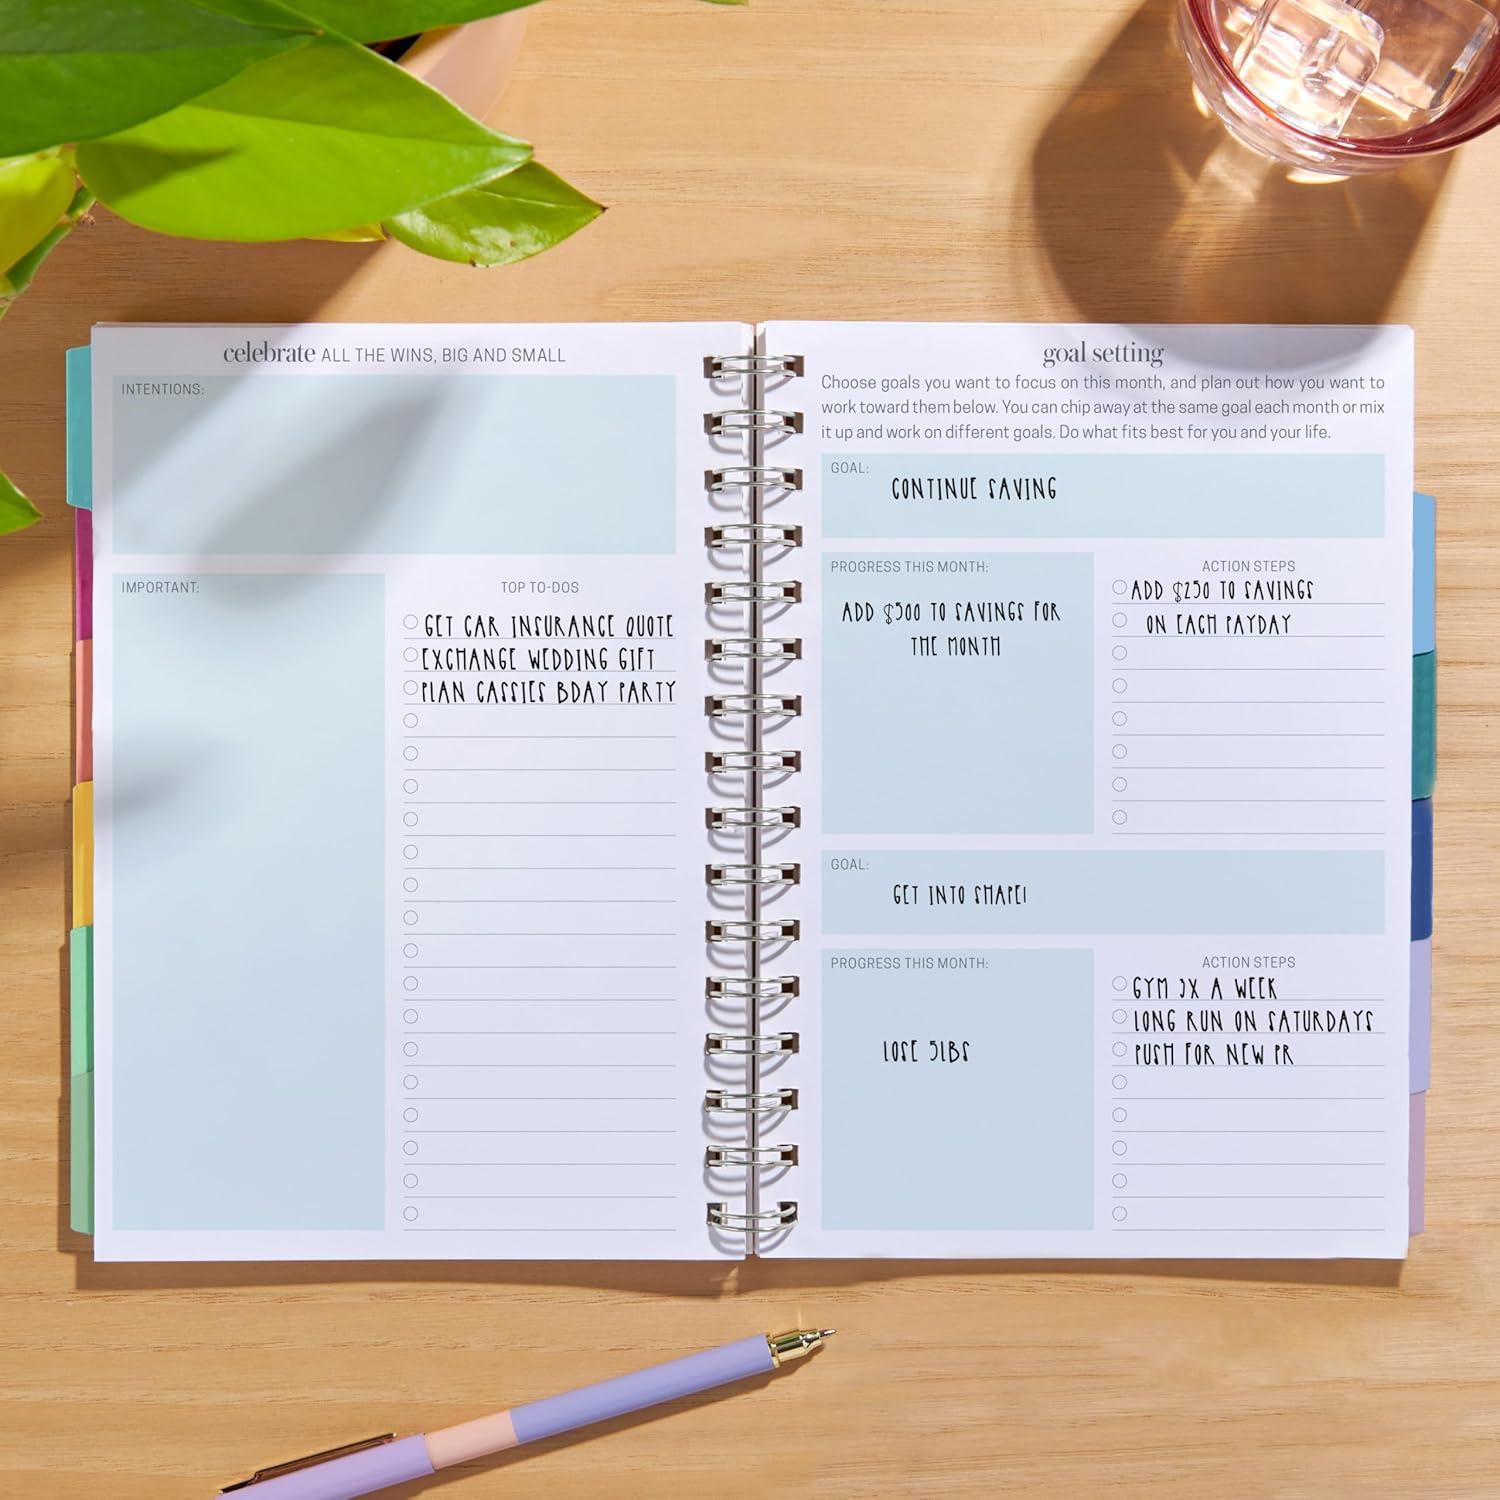 celebrate ALL THE WINS, BIG AND SMALL
INTENTIONS:
IMPORTANT:
TOP TO-DOS
GET CAR INSURANCE QUOTE
EXCHANGE WEDDING GIFT
PLAN CASSIES BDAY PARTY
goal setting
Choose goals you want to focus on this month, and plan out how you want to
work toward them below. You can chip away at the same goal each month or mix
it up and work on different goals. Do what fits best for you and your life.
GOAL:
CONTINUE SAVING
PROGRESS THIS MONTH:
ADD $500 TO SAVINGS FOR
THE MONTH
ACTION STEPS
ADD $250 TO SAVINGS
ON EACH PAYDAY
GOAL:
GET INTO SHAPE!
PROGRESS THIS MONTH:
LOSE 5LBS
ACTION STEPS
GYM 3X A WEEK
LONG RUN ON SATURDAYS
PUSH FOR NEW PR